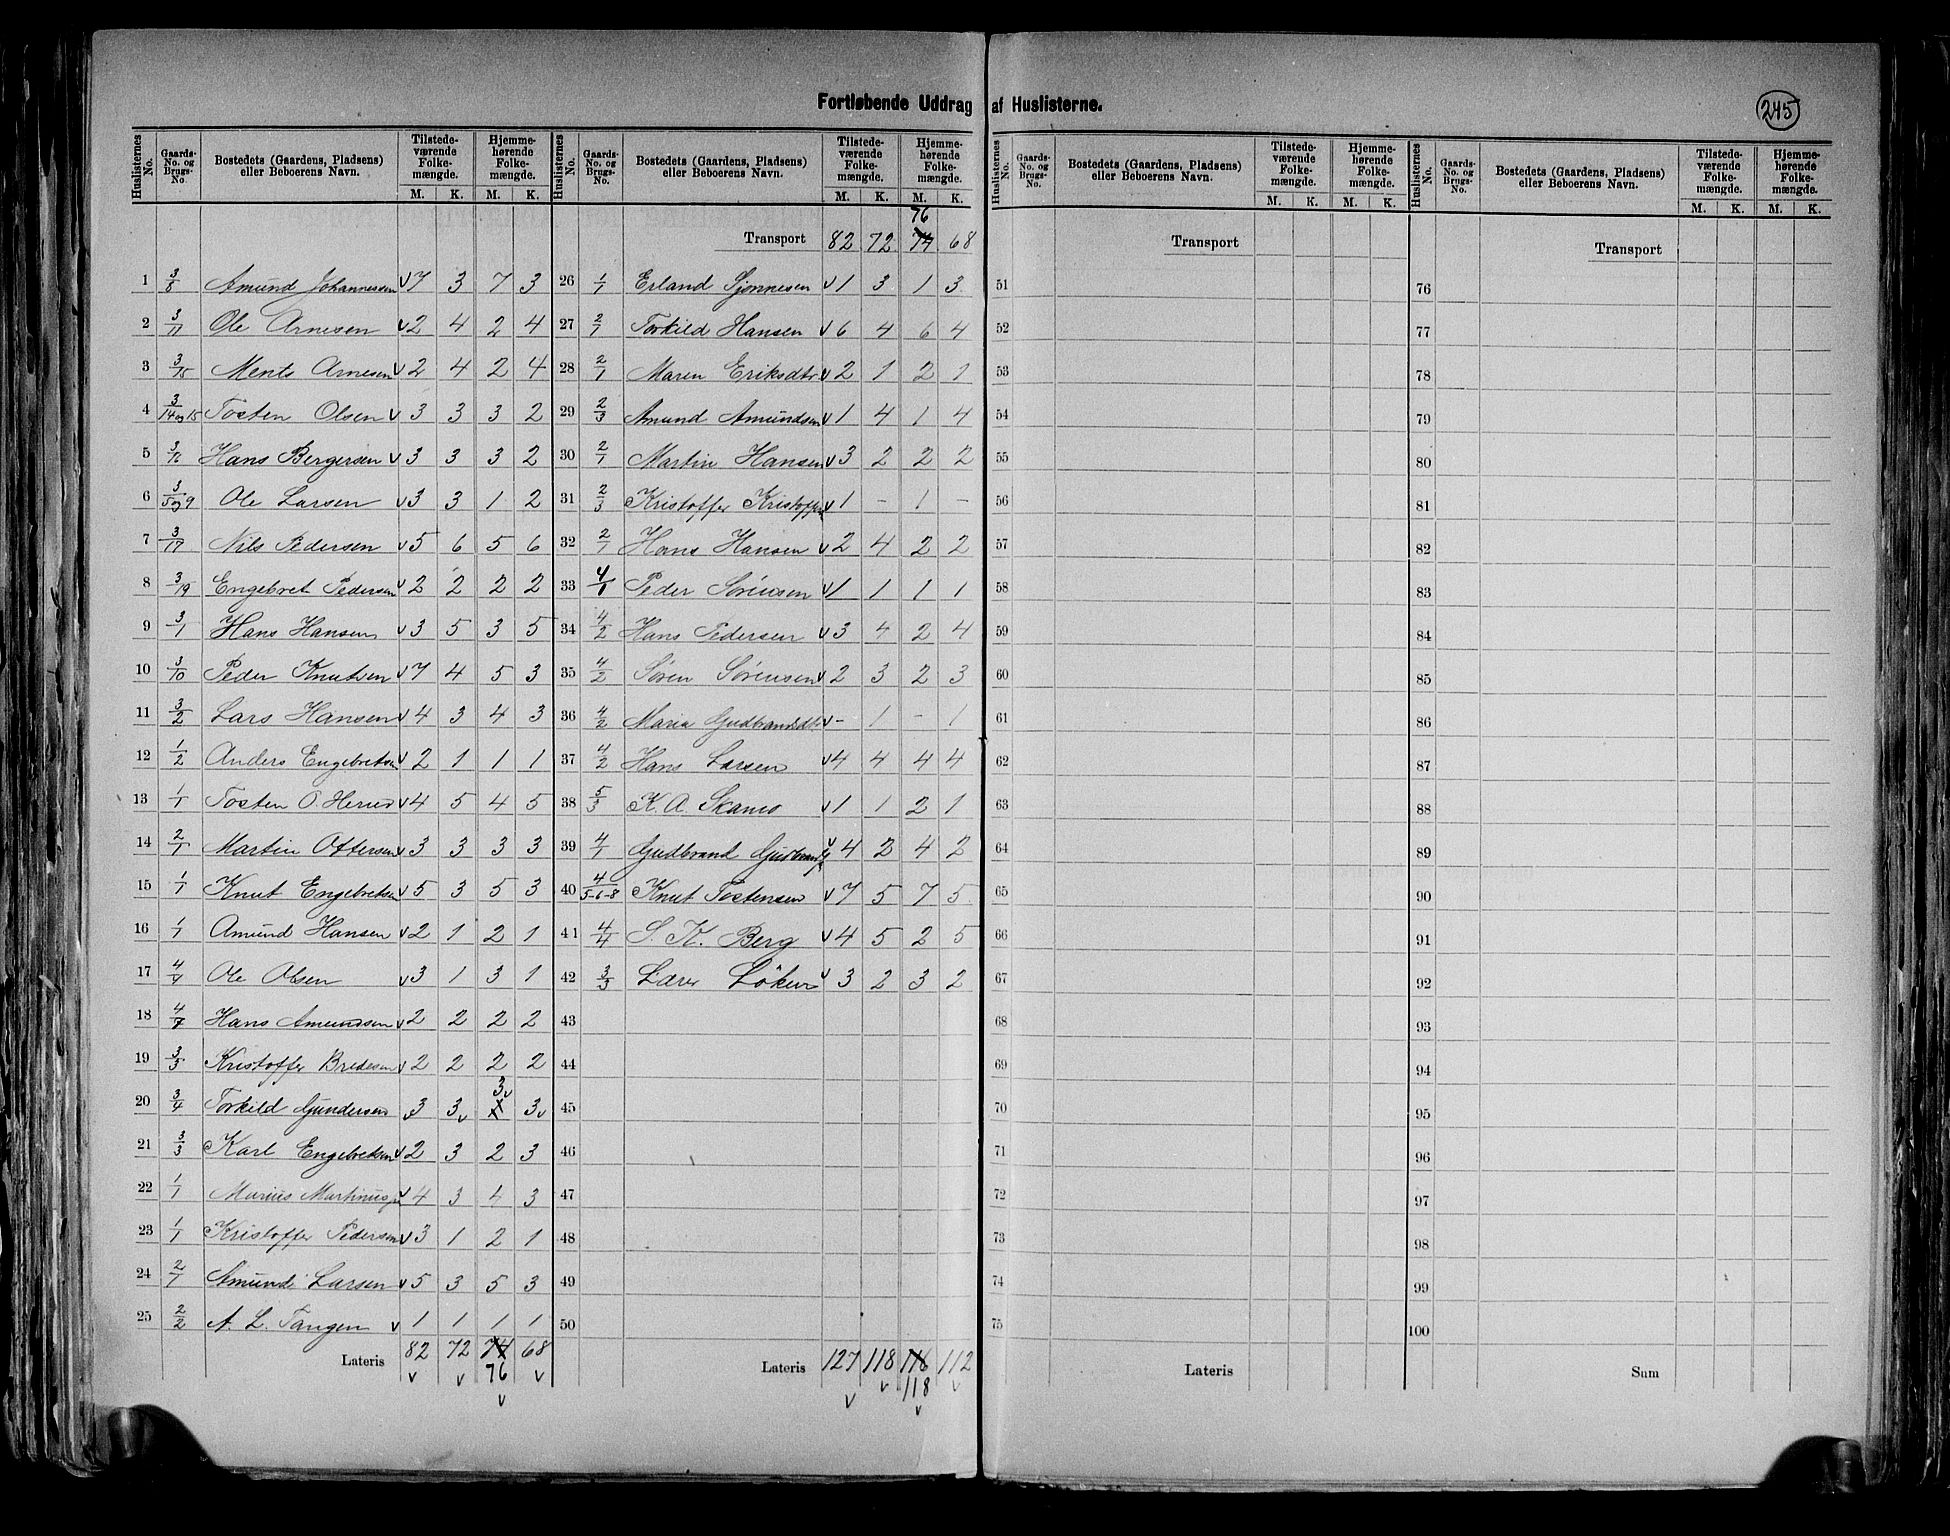 Fortløbende Uddrag af Huslisterne.
245
Huslisternes No. | Gaards-No. og Brugs-No. | Bostedets (Gaardens, Pladsens) eller Beboerens Navn. | Tilstedeværende Folkemængde. M. K. | Hjemmehørende Folkemængde. M. K.
1 3/8 Amund Johannessen v 7 3 7 3
2 3/11 Ole Arnesen v 2 4 2 4
3 3/15 Ments Arnesen v 2 4 2 4
4 3/14og15 Tosten Olsen v 3 3 3 2
5 3/12 Hans Bergersen v 3 3 3 2
6 3/5og9 Ole Larsen v 3 3 1 2
7 3/17 Nils Pedersen v 5 6 5 6
8 3/19 Engebret Pedersen v 2 2 2 2
9 3/1 Hans Hansen v 3 5 3 5
10 3/10 Peder Knutsen v 7 4 5 3
11 3/2 Lars Hansen v 4 3 4 3
12 1/2 Anders Engebretsen v 2 1 1 1
13 1/1 Tosten O. Herud v 4 5 4 5
14 2/1 Martin Ottersen v 3 3 3 3
15 1/1 Knut Engebretsen v 5 3 5 3
16 1/1 Amund Hansen v 2 1 2 1
17 4/4 Ole Olsen v 3 1 3 1
18 4/7 Hans Amundsen v 2 2 2 2
19 3/5 Kristoffer Bredesen v 2 2 2 2
20 3/4 Torkild Gundersen v 3 3 v 3 v 3 v
21 3/3 Karl Engebretsen v 2 3 2 3
22 1/1 Marius Martinusen v 4 3 4 3
23 1/1 Kristoffer Pedersen v 3 1 2 1
24 2/1 Amund Larsen v 5 3 5 3
25 2/2 A. L. Tangen v 1 1 1 1
Lateris 82 72 74 68
76
v v v v
Huslisternes No. | Gaards-No. og Brugs-No. | Bostedets (Gaardens, Pladsens) eller Beboerens Navn. | Tilstedeværende Folkemængde. M. K. | Hjemmehørende Folkemængde. M. K.
76
Transport 82 72 74 68
26 1/1 Erland Sjønnesen v 1 3 1 3
27 2/1 Torkild Hansen v 6 4 6 4
28 2/1 Maren Eriksdtr v 2 1 2 1
29 2/3 Amund Amundsen v 1 4 1 4
30 2/1 Martin Hansen v 3 2 2 2
31 2/3 Kristoffer v 1 - 1 -
32 2/1 Hans Hansen v 2 4 2 2
33 4/1 Peder Sørensen v 1 1 1 1
34 4/2 Hans Pedersen v 3 4 2 4
35 4/2 Søren Sørensen v 2 3 2 3
36 4/2 Maria Gudbrandsdtr v - 1 - 1
37 4/2 Hans Larsen v 4 4 4 4
38 5/3 K. A. v 1 1 2 1
39 4/1 Gudbrand v 4 2 4 2
40 4/5-6-8 Knut Tostensen v 7 5 7 5
41 4/4 S. K. Berg v 4 5 2 5
42 3/3 Lærer Löken v 3 2 3 2
43
44
45
46
47
48
49
50
Lateris 127 118 116 112
118
v v v v
Huslisternes No. | Gaards-No. og Brugs-No. | Bostedets (Gaardens, Pladsens) eller Beboerens Navn. | Tilstedeværende Folkemængde. M. K. | Hjemmehørende Folkemængde. M. K.
Transport
51
52
53
54
55
56
57
58
59
60
61
62
63
64
65
66
67
68
69
70
71
72
73
74
75
Lateris
Huslisternes No. | Gaards-No. og Brugs-No. | Bostedets (Gaardens, Pladsens) eller Beboerens Navn. | Tilstedeværende Folkemængde. M. K. | Hjemmehørende Folkemængde. M. K.
Transport
76
77
78
79
80
81
82
83
84
85
86
87
88
89
90
91
92
93
94
95
96
97
98
99
100
Sum